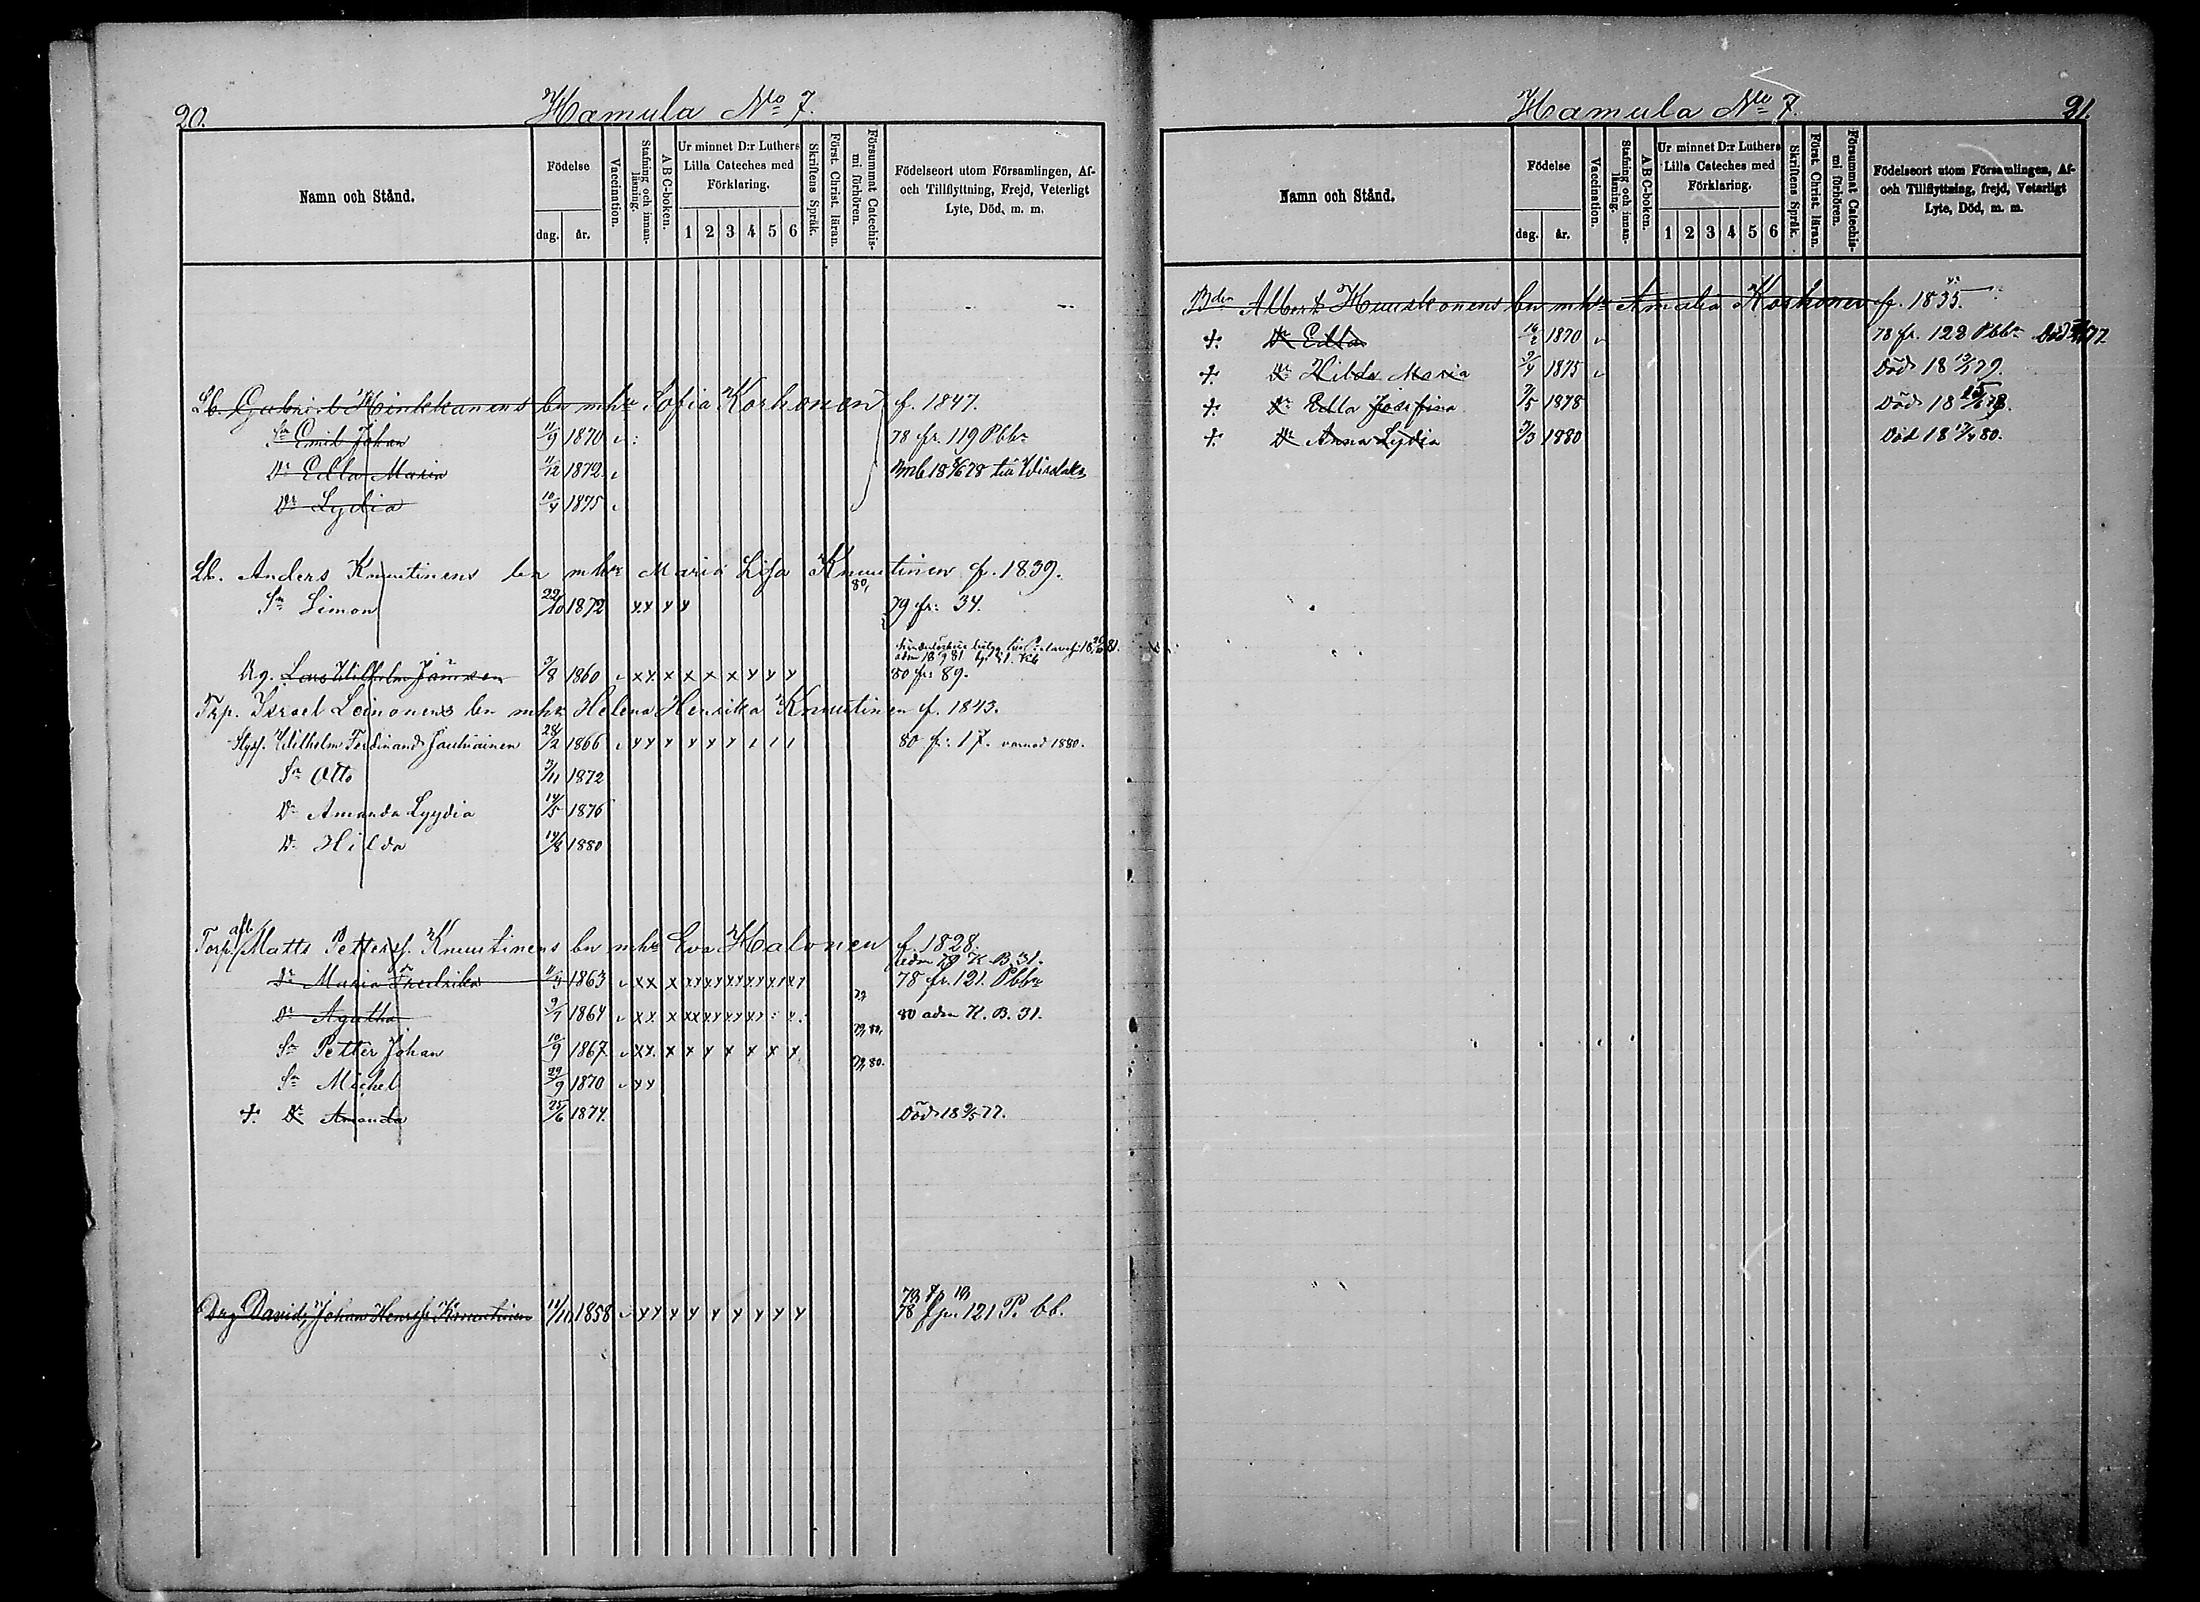 20.
Hamula No 7.
Namn och Stånd.
Födelse
dag.
år.
Vaccination.
Stafning och innan-
läsning.
A B C-boken.
Ur minnet D:r Luthers
Lilla Cateches med
Förklaring.
1 2 3 4 5 6
Skriftens Språk.
Först. Christ. läran.
Försummat Catechis-
mi förhören.
Födelseort utom Församlingen, Af-
och Tillflyttning, Frejd, Veterligt
Lyte, Död, m. m.
Lb. Gabriel Hinkkanens bn mhu Sofia Korhonen f. 1847.
Sn Emil Johan 11/9 1870 78 fr. 119 Pbbn
Dr Edla Maria 11/12 1872
Dr Lydia 10/4 1875
Lb. Anders Knuutinens bn mhu Maria Lisa Knuutinen f. 1839.
80,
Sn Simon 22/10 1872 x x x x 79 fr: 34.
Dg. Lars Wilhelm 3/8 1860 x x x x x x x x x 80 fr: 89.
Trp. Israel Loinonens bn mhu Helena Henrika Knuutinen f. 1843.
Wilhelm Ferdinand Jauhiainen 28/2 1866 80 fr: 17. 1880.
Sn Otto 3/11 1872
Dr Amanda Lyydia 14/5 1876
Dr Hilda 14/8 1880
afl.
Torp. Matts Petterss. Knuutinens bn mhu Eva Halonen f. 1828.
adm 78 K. B. 31.
Dr Maria Fredrika 11/3 1863 78 fr. 121. Pbbn
79
Dr Agatha 9/7 1864 80 adm K. B. 31.
79, 80,
Sn Petter Johan 10/9 1867 x x x x x x x x x
79, 80.
Sn Michel 29/9 1870 x x
+. Dr Amanda 25/6 1874. Död 18 9/5 77.
Drg David Johan Henrss Knuutinen 11/11 1858 x x x x x x x x x 78 fr. 121 P. bb.
Hamula No 7.
21.
Namn och Stånd.
Födelse
dag.
år.
Vaccination.
Stafning och innan-
läsning.
A B C-boken.
Ur minnet D:r Luthers
Lilla Cateches med
Förklaring.
1 2 3 4 5 6
Skriftens Språk.
Först. Christ. läran.
Försummat Catechis-
mi förhören.
Födelseort utom Församlingen, Af-
och Tillflyttning, frejd, Veterligt
Lyte, Död, m. m.
Bden Albert Huuskonens bn mhu Amalia Korhonen f. 1835.
+. Dr Edla 16/2 1870 78 fr. 123 Pbbn Död 77
+. Dr Hilda Maria 9/4 1875 Död 18 79.
+. Dr Edla Josefina 7/5 1878 Död 18 78.
+. Dr Anna Lydia 3/3 1880 Död 18 80.